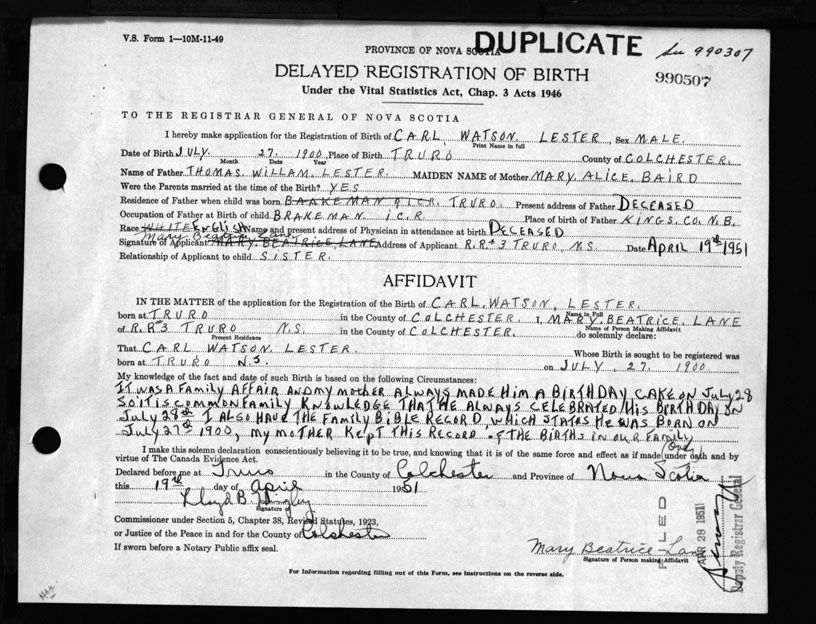 V.S. Form 1—10M-11-49
PROVINCE OF NOVA SCOTIA
DUPLICATE
990307
990507
DELAYED REGISTRATION OF BIRTH
Under the Vital Statistics Act, Chap. 3 Acts 1946
TO THE REGISTRAR GENERAL OF NOVA SCOTIA
I hereby make application for the Registration of Birth of CARL WATSON. LESTER, Sex MALE.
Print Name in full
Date of Birth JULY. 27. 1900, Place of Birth TRURO County of COLCHESTER.
Month Date Year
Name of Father THOMAS. WILLAM. LESTER. MAIDEN NAME of Mother MARY. ALICE. BAIRD
Were the Parents married at the time of the Birth? YES
Residence of Father when child was born BAAKEMAN I.C.R. TRURO. Present address of Father DECEASED
Occupation of Father at Birth of child BRAKEMAN. I.C.R Place of birth of Father KINGS. CO. N.B.
Race WHITE ENGLISH Name and present address of Physician in attendance at birth DECEASED
Mary Beatrice Lane
Signature of Applicant MARY. BEATRICE. LANE Address of Applicant R.R#3 TRURO, N.S. Date APRIL 19th 1951
Relationship of Applicant to child SISTER.
AFFIDAVIT
IN THE MATTER of the application for the Registration of the Birth of CARL. WATSON. LESTER.
Name in Full
born at TRURO in the County of COLCHESTER. I, MARY. BEATRICE. LANE
Name of Person Making Affidavit
of R.R#3 TRURO N.S. in the County of COLCHESTER. do solemnly declare:
Present Residence
That CARL WATSON. LESTER. Whose Birth is sought to be registered was
born at TRURO N.S. on JULY. 27. 1900
My knowledge of the fact and date of such Birth is based on the following Circumstances:
IT WAS A FAMILY AFFAIR AND MY MOTHER ALWAYS MADE HIM A BIRTHDAY CAKE ON JULY 28
SO IT IS COMMON FAMILY KNOWLEDGE THAT HE ALWAYS CELEBRATED HIS BIRTHDAY ON
JULY 28th I ALSO HAVE THE FAMILY BIBLE RECORD, WHICH STATES HE WAS BORN ON
JULY 27th 1900, MY MOTHER KEPT THIS RECORD OF THE BIRTHS IN OUR FAMILY
I make this solemn declaration conscientiously believing it to be true, and knowing that it is of the same force and effect as if made under oath and by
virtue of The Canada Evidence Act.
Declared before me at Truro in the County of Colchester and Province of Nova Scotia
this 19th day of April 1951
Lloyd B. Higley
Signature
Commissioner under Section 5, Chapter 38, Revised Statutes, 1923,
or Justice of the Peace in and for the County of Colchester
If sworn before a Notary Public affix seal.
Mary Beatrice Lane
Signature of Person making Affidavit
FILED
APR 28 1951
Deputy Registrar General
For Information regarding filling out of this Form, see Instructions on the reverse side.